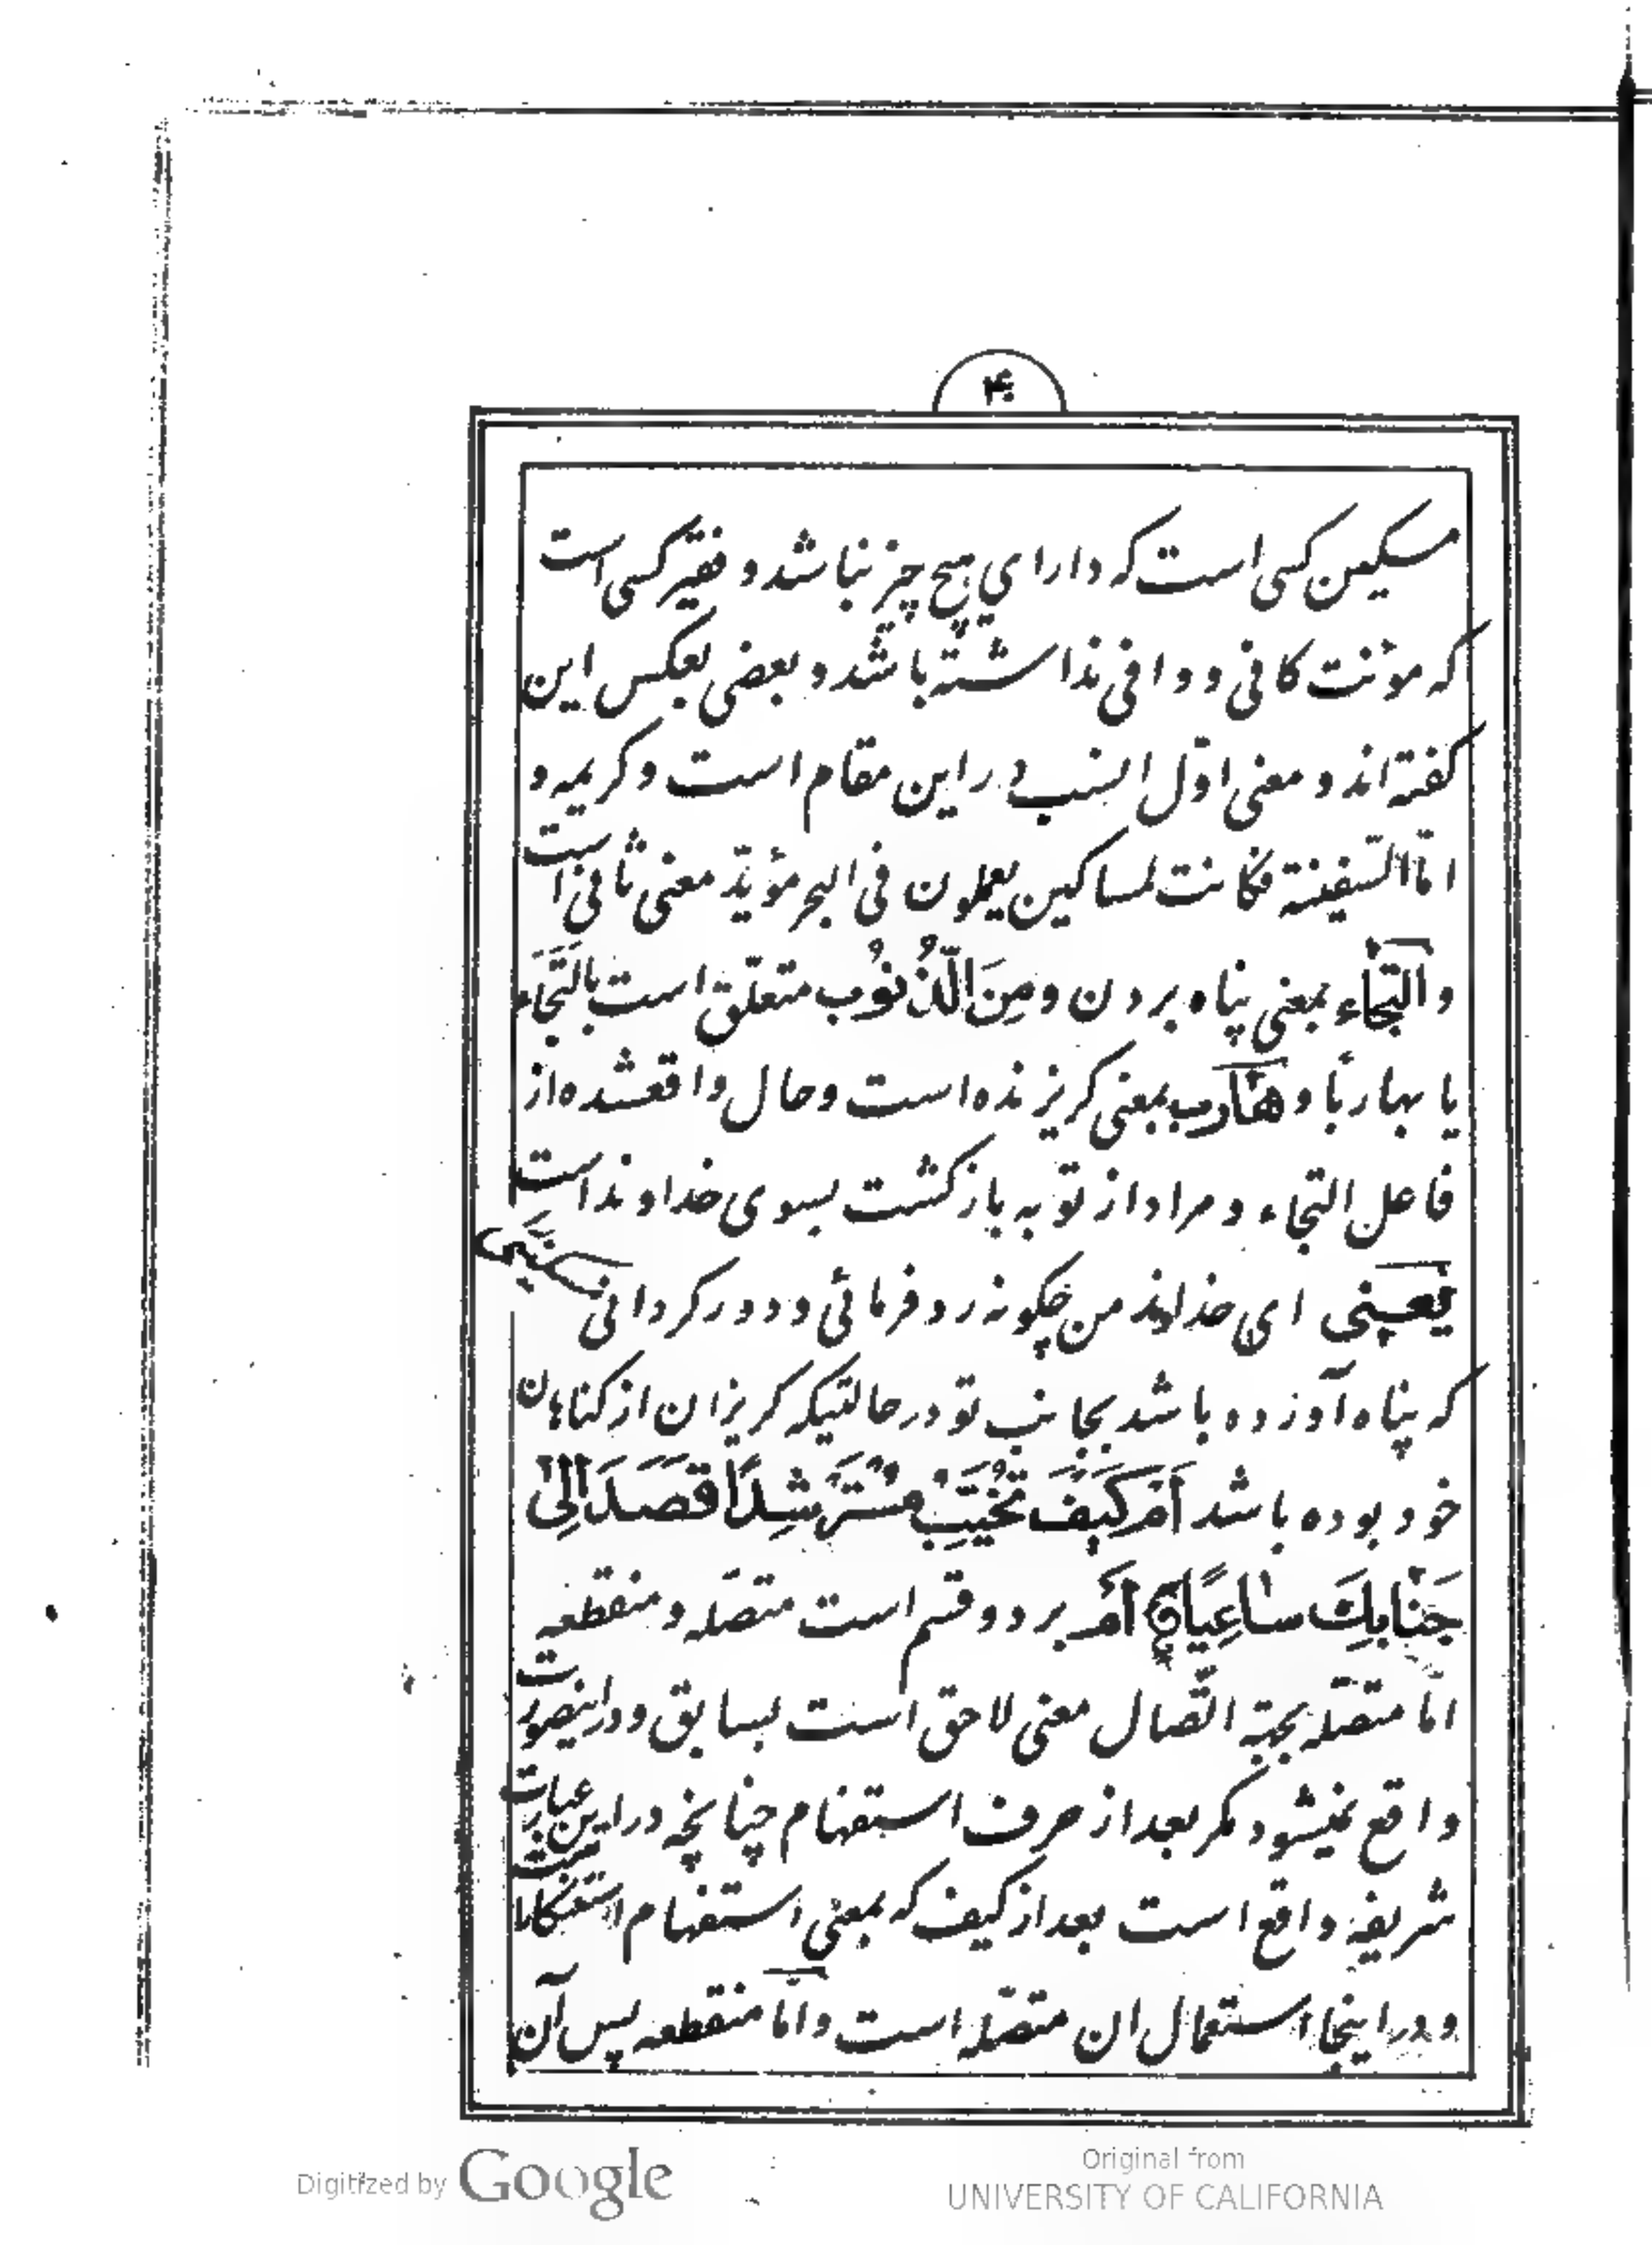 ۴۰
مسکین کسی است که دارای هیچ چیز نباشد و فقیر کسی است
که مؤنت کافی و وافی نداشته باشد و بعضی بعکس این
کفته‌اند و معنی اوّل انسب در این مقام است و کریمه و
امّا السّفینة فکانت لمساکین یعملون فی البحر مؤیّد معنی ثانی است
و التجاء بمعنی پناه بردن و مِنَ الذُّنُوب متعلّق است بالتَجَاء
یا بهاربًا و هارب بمعنی کریزنده است و حال واقعشده از
فاعل التجاء و مراد از توبه بازکشت بسوی خداونداست
یعنی ای خداوند من چکونه رد فرمائی و دور کردانی
که پناه آورده باشد بجانب تو در حالتیکه کریزان از کناهان
خود بوده باشد اَمْ کَیْفَ تُخَیِّبُ مُسْتَرْشِدًا قَصَدَ اِلیٰ
جَنَابِکَ سَاعِیًا اَمْ بر دو قسم است متصّله و منقطعه
امّا متصّله بجهة اتّصال معنی لاحق است بسابق و در اینصورت
واقع نمیشود مکر بعد از حرف استفهام چنانچه در این عبارت
شریفه واقع است بعد از کیف که بمعنی استفهام است
و در اینجا استعمال ان متصّله است و امّا منقطعه پس آن
Digitized by Google
Original from
UNIVERSITY OF CALIFORNIA